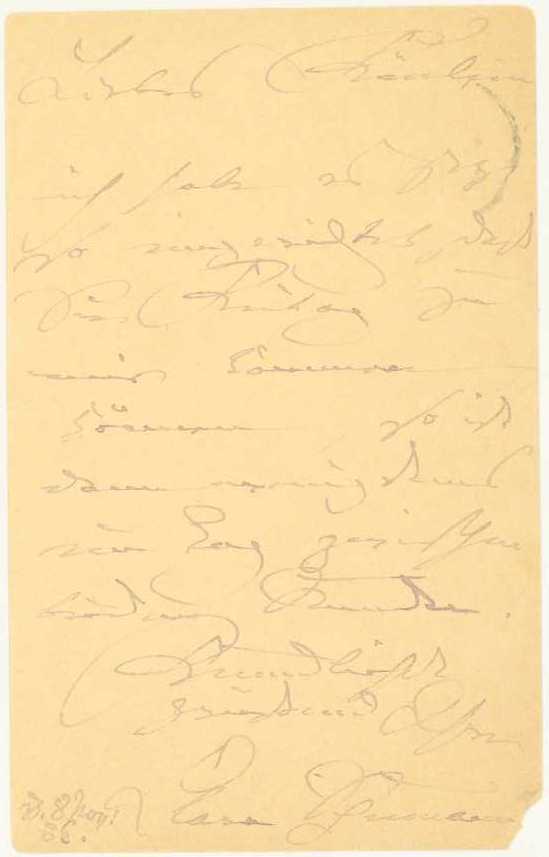 Liebes Fräulein
ich habe es jetzt
so eingerichtet daß
Sie Freitag zu
mir kommen
können, so ist
dann wenigstens
ein Tag zwischen
beiden Stunden.
Freundlichst
grüßend Ihre
Clara Schumann
d. 8 Nov.